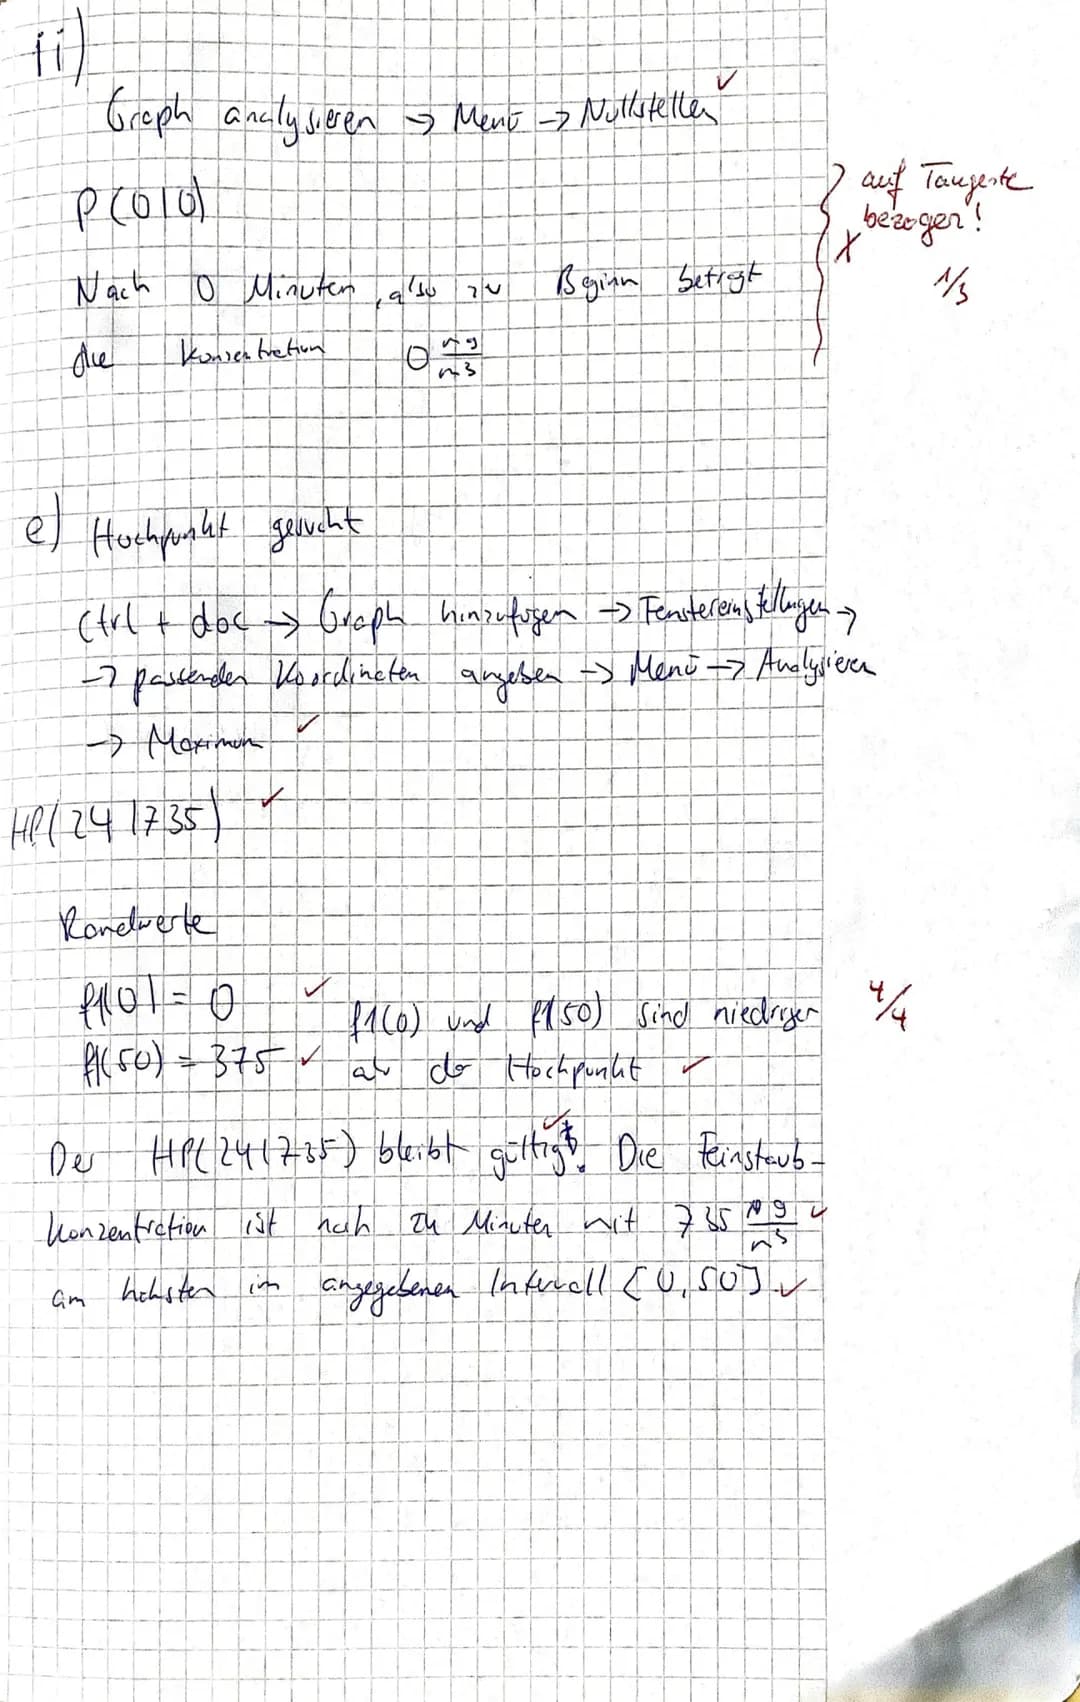 ii)
Graph analysieren → Menü → Nullstellen ✓
P(0|0)
auf Tangente
bezogen!
1/3
Nach 0 Minuten, also zu Beginn beträgt
die Konzentration 0 mg/m3
e) Hochpunkt gesucht
Ctrl + doc → Graph hinzufügen → Fenstereinstellungen →
→ passenden Koordinaten angeben → Menü → Analysieren
→ Maximum ✓
HP(24|735) ✓
Randwerte
f1(0) = 0 ✓ f1(0) und f1(50) sind niedriger
4/4
f1(50) = 375 ✓ als der Hochpunkt ✓
Der HP(24|735) bleibt gültig. Die Feinstaub-
konzentration ist nach 24 Minuten mit 735 mg/m3 ✓
am höhsten im angegebenen Intervall [0,50] ✓